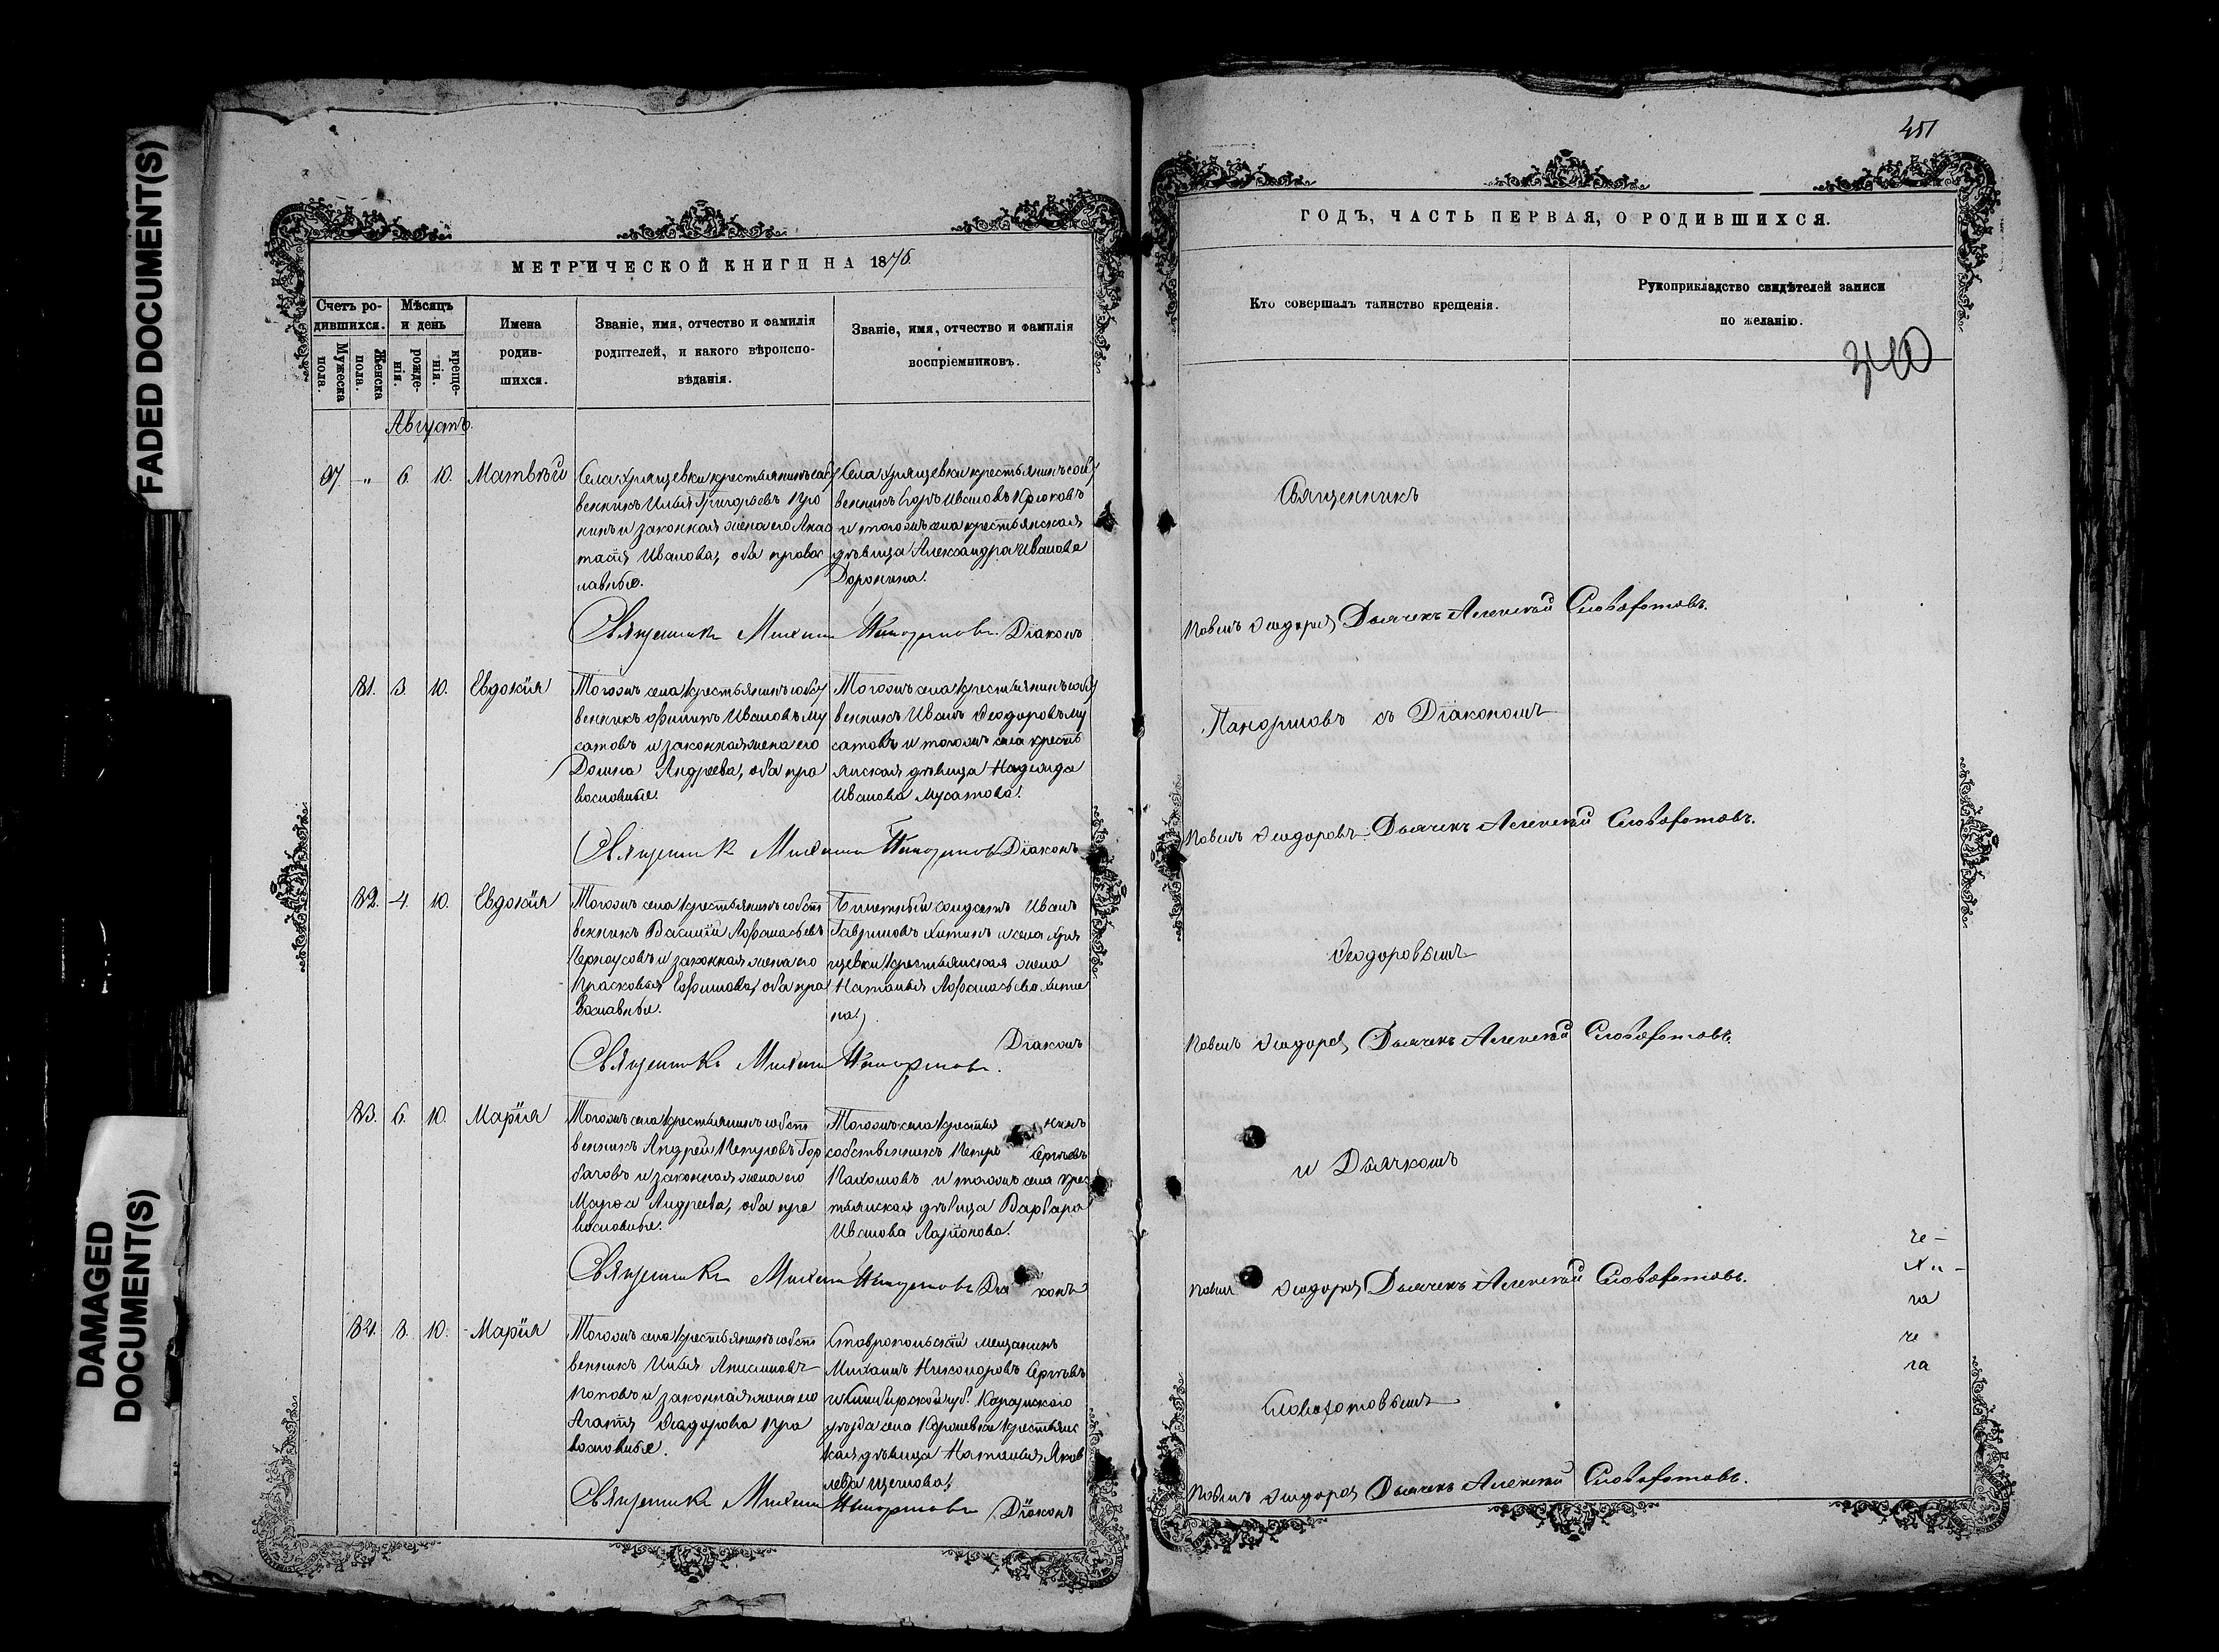 FADED DOCUMENT(S)
DAMAGED
DOCUMENT(S)
МЕТРИЧЕСКОЙ КНИГИ НА 1876
Счетъ ро-
дившихся.
Мужеска
пола.
Женска
пола.
Мѣсяцъ
и день
рожде-
нія.
креще-
нія.
Имена
родив-
шихся.
Званіе, имя, отчество и фамилія
родителей, и какого вѣроиспо-
вѣданія.
Званіе, имя, отчество и фамилія
воспріемниковъ.
Августъ.
97 „ 6. 10. Матвѣй
Села Хрящевки крестьянинъ собст
венникъ Илья Григорьевъ
и законная жена его Анас
тасія Иванова, оба правос
лавные.
Села Хрящевки крестьянинъ собст
венникъ Егоръ Ивановъ Крюковъ
и тогожъ села крестьянская
дѣвица Александра Иванова
Доронина.
Священникъ Михаилъ Панормовъ. Діаконъ
81. 3. 10. Евдокія
Тогожъ села крестьянинъ собст
венникъ Филипъ Ивановъ Му
сатовъ и законная жена его
Домна Андреева, оба пра
вославные.
Тогожъ села крестьянинъ собст
венникъ Иванъ Ѳеодоровъ Му
сатовъ и тогожъ села кресть
янская дѣвица Надежда
Иванова Мусатова.
Священникъ Михаилъ Панормовъ Діаконъ
82. 4. 10. Евдокія
Тогожъ села крестьянинъ собст
венникъ Василій Афанасьевъ
Черноусовъ и законная жена его
Прасковья Ефимова, оба пра
вославные.
Билетный солдатъ Иванъ
Гавриловъ Хитинъ и села Хря
щевки крестьянская жена
Наталья Афанасьева Хити
на.
Священникъ Михаилъ Панормовъ. Діаконъ
83. 6. 10. Марія
Тогожъ села крестьянинъ собст
венникъ Андрей Петровъ Гор
бачовъ и законная жена его
Марѳа Андреева, оба пра
вославные.
Тогожъ села крестья нинъ
собственникъ Петръ Сергѣевъ
Пахомовъ и тогожъ села крес
тьянская дѣвица Варвара
Иванова Ларіонова.
Священникъ Михаилъ Панормовъ Діа конъ
84. 8. 10. Марія
Тогожъ села крестьянинъ собст
венникъ Илья Анисимовъ
Поповъ и законная жена его
Агафія Ѳеодорова пра
вославные.
Ставропольскій мещанинъ
Михаилъ Никаноровъ Сергѣевъ
и Симбирской губ. Карсунского
уѣзда села крестьянс
кая дѣвица Наталья Яков
лева
Священникъ Михаилъ Панормовъ Діаконъ
451
ГОДЪ, ЧАСТЬ ПЕРВАЯ, О РОДИВШИХСЯ.
Кто совершалъ таинство крещенія.
Рукоприкладство свидѣтелей записи
по желанію.
Священникъ
Павелъ Ѳеодоровъ Дьячекъ Алексей Словохотовъ.
Панормовъ съ Діакономъ
Павелъ Ѳеодоровъ. Дьячекъ Алексей Словохотовъ.
Ѳеодоровымъ
Павелъ Ѳеодоровъ Дьячекъ Алексей Словохотовъ.
и Дьячкомъ
Павелъ Ѳеодоровъ Дьячекъ Алексей Словохотовъ.
Словохотовымъ
Павелъ Ѳеодоровъ Дьячекъ Алексей Словохотовъ.